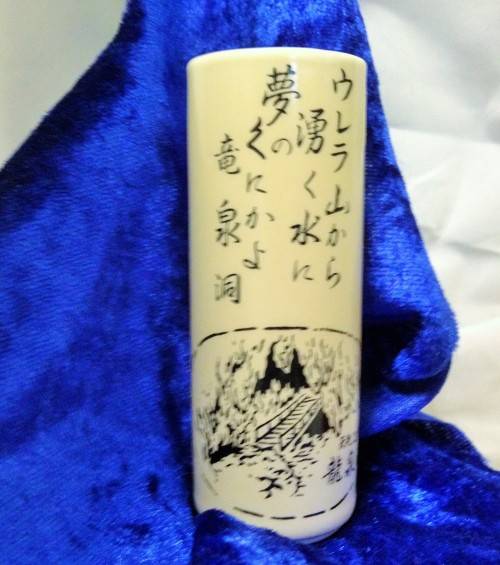 ウレラ山から
湧く水に
夢のくにかよ
竜泉洞
龍泉